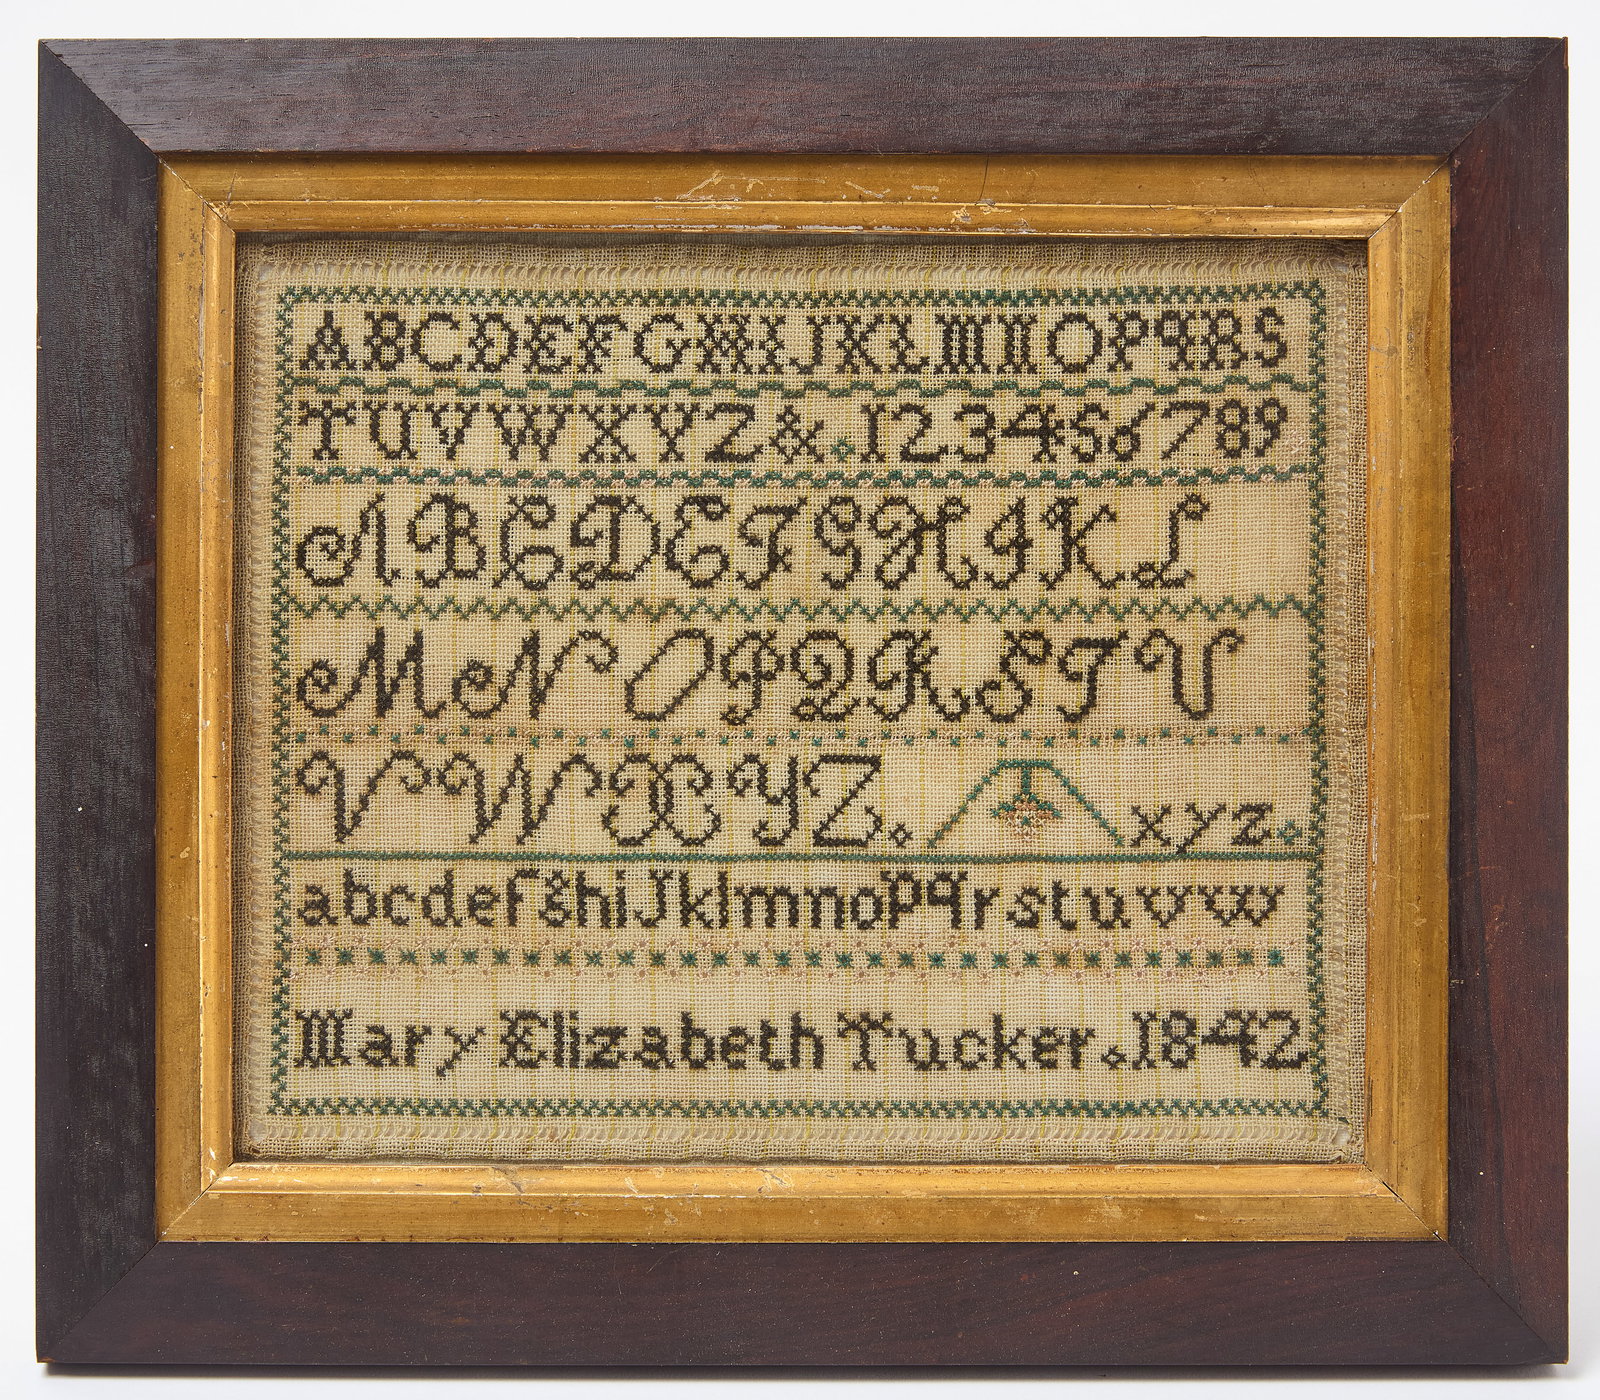 ABCDEFGHIJKLMNOPQRS
TUVWXYZ&.123456789
ABCDEFGHIKL
MNOPQRSTU
VWXYZ. xyz.
abcdefghijklmnopqrstuvw
Mary Elizabeth Tucker.1842